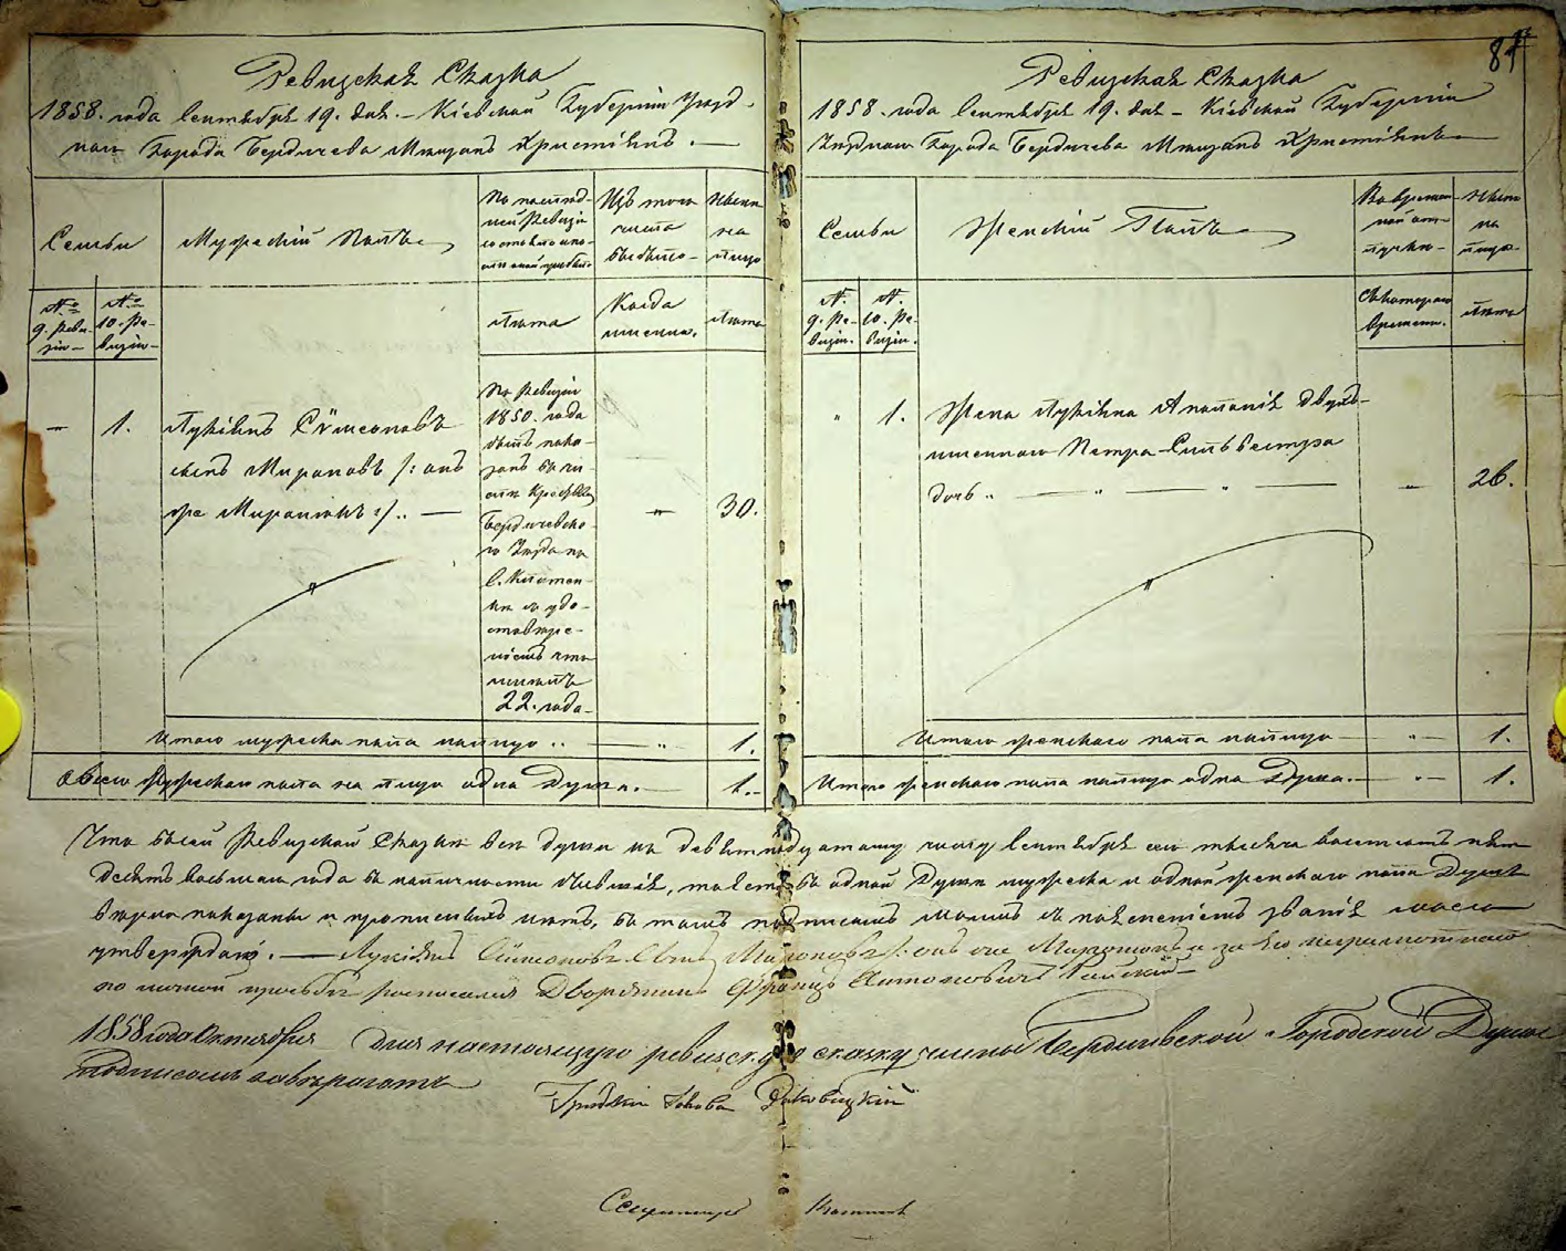 87
Ревизская Сказка
1858. года Сентября 19. дня. – Кіевской Губерніи Уезд-
наго Города Бердичева Мещанъ Христіянъ. —
Семьи
Мужескій Полъ
По послѣд-
ней Ревизіи
состояло и по-
слѣ оной прибыло
Изъ того
числа
выбыло –
Нынѣ
на
лицо
№
9. реви-
зіи –
№
10. ре-
визіи –
Лѣта
Когда
именно.
Лѣта
–
1.
Лукіянъ Сѵмеоновъ
сынъ Мироновъ /: онъ
же Миронюкъ :/ .. —
По Ревизіи
1850. года
былъ пока-
занъ въ чи-
слѣ Крестьянъ
Бердичевска-
го Уезда на
с.
22. года –
"
30.
Итого мужеска пола налицо .. — " –
1.
Всего Мужескаго пола на лицо одна Душа. —
1. –
Ревизская Сказка
1858. года Сентября 19. дня – Кіевской Губерніи
Уезднаго Города Бердичева Мещанъ Христіянъ —
Семьи
Женскій Полъ
Во времен-
ной отл-
учкѣ –
Нынѣ
на
лицо –
№.
9. ре-
визіи.
№.
10. ре-
визіи.
Съ котораго
времени.
Лѣта
"
1.
Жена Лукіяна Аполонія двухъ-
именнаго Петра-Сильвестра
дочь .. — " — " —
"
26.
Итого женскаго пола налицо — " –
1.
Итого женскаго пола налицо одна Душа. — " –
1.
Что въ сей Ревизской Сказкѣ всѣ души къ девятнадцатому числу Сентября сего тысяча восемсотъ пять
десятъ восьмаго года въ наличности бывшія, тоесть въ одной Душѣ мужеска и одной женскаго пола Душѣ
вѣрно показаны и прописныхъ нетъ, въ томъ подписомъ моимъ съ поясненіемъ званія моего
утверждаю. — Лукіянъ Сѵмеоновъ Сынъ Мироновъ /: онъ же Миронюкъ :/ а за его неграмотнаго
по личной просьбѣ росписался Дворянинъ Францъ Антоновичъ –
1858 года Октября дня настоящую ревизскую сказку члены Бердичевской Городской Думы
подписомъ завѣряютъ
Градскій Голова
Секретарь